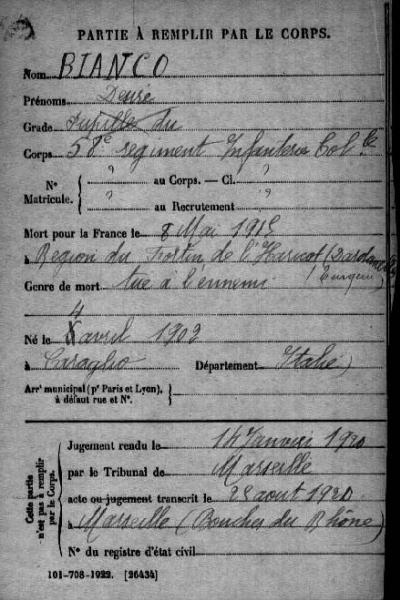 PARTIE À REMPLIR PAR LE CORPS.
Nom BIANCO
Prénoms Désiré
Grade Pupille du
Corps 58e regiment Infanterie Colle
N° Matricule. { ? au Corps. — Cl. ?
? au Recrutement ?
Mort pour la France le 8 Mai 1915
à Region du Fortin de l'Haricot (Dardanelles
Genre de mort tué à l'ennemi (Turquie)
4
Né le X avril 1902
à Caraglio Département Italie)
Arrt municipal (pr Paris et Lyon), à défaut rue et N°. {
Cette partie n'est pas à remplir par le Corps.
Jugement rendu le 14 Janvier 1920
par le Tribunal de Marseille
acte ou jugement transcrit le 28 aout 1920
à Marseille (Bouches du Rhône)
N° du registre d'état civil
101-708-1922. [26434]